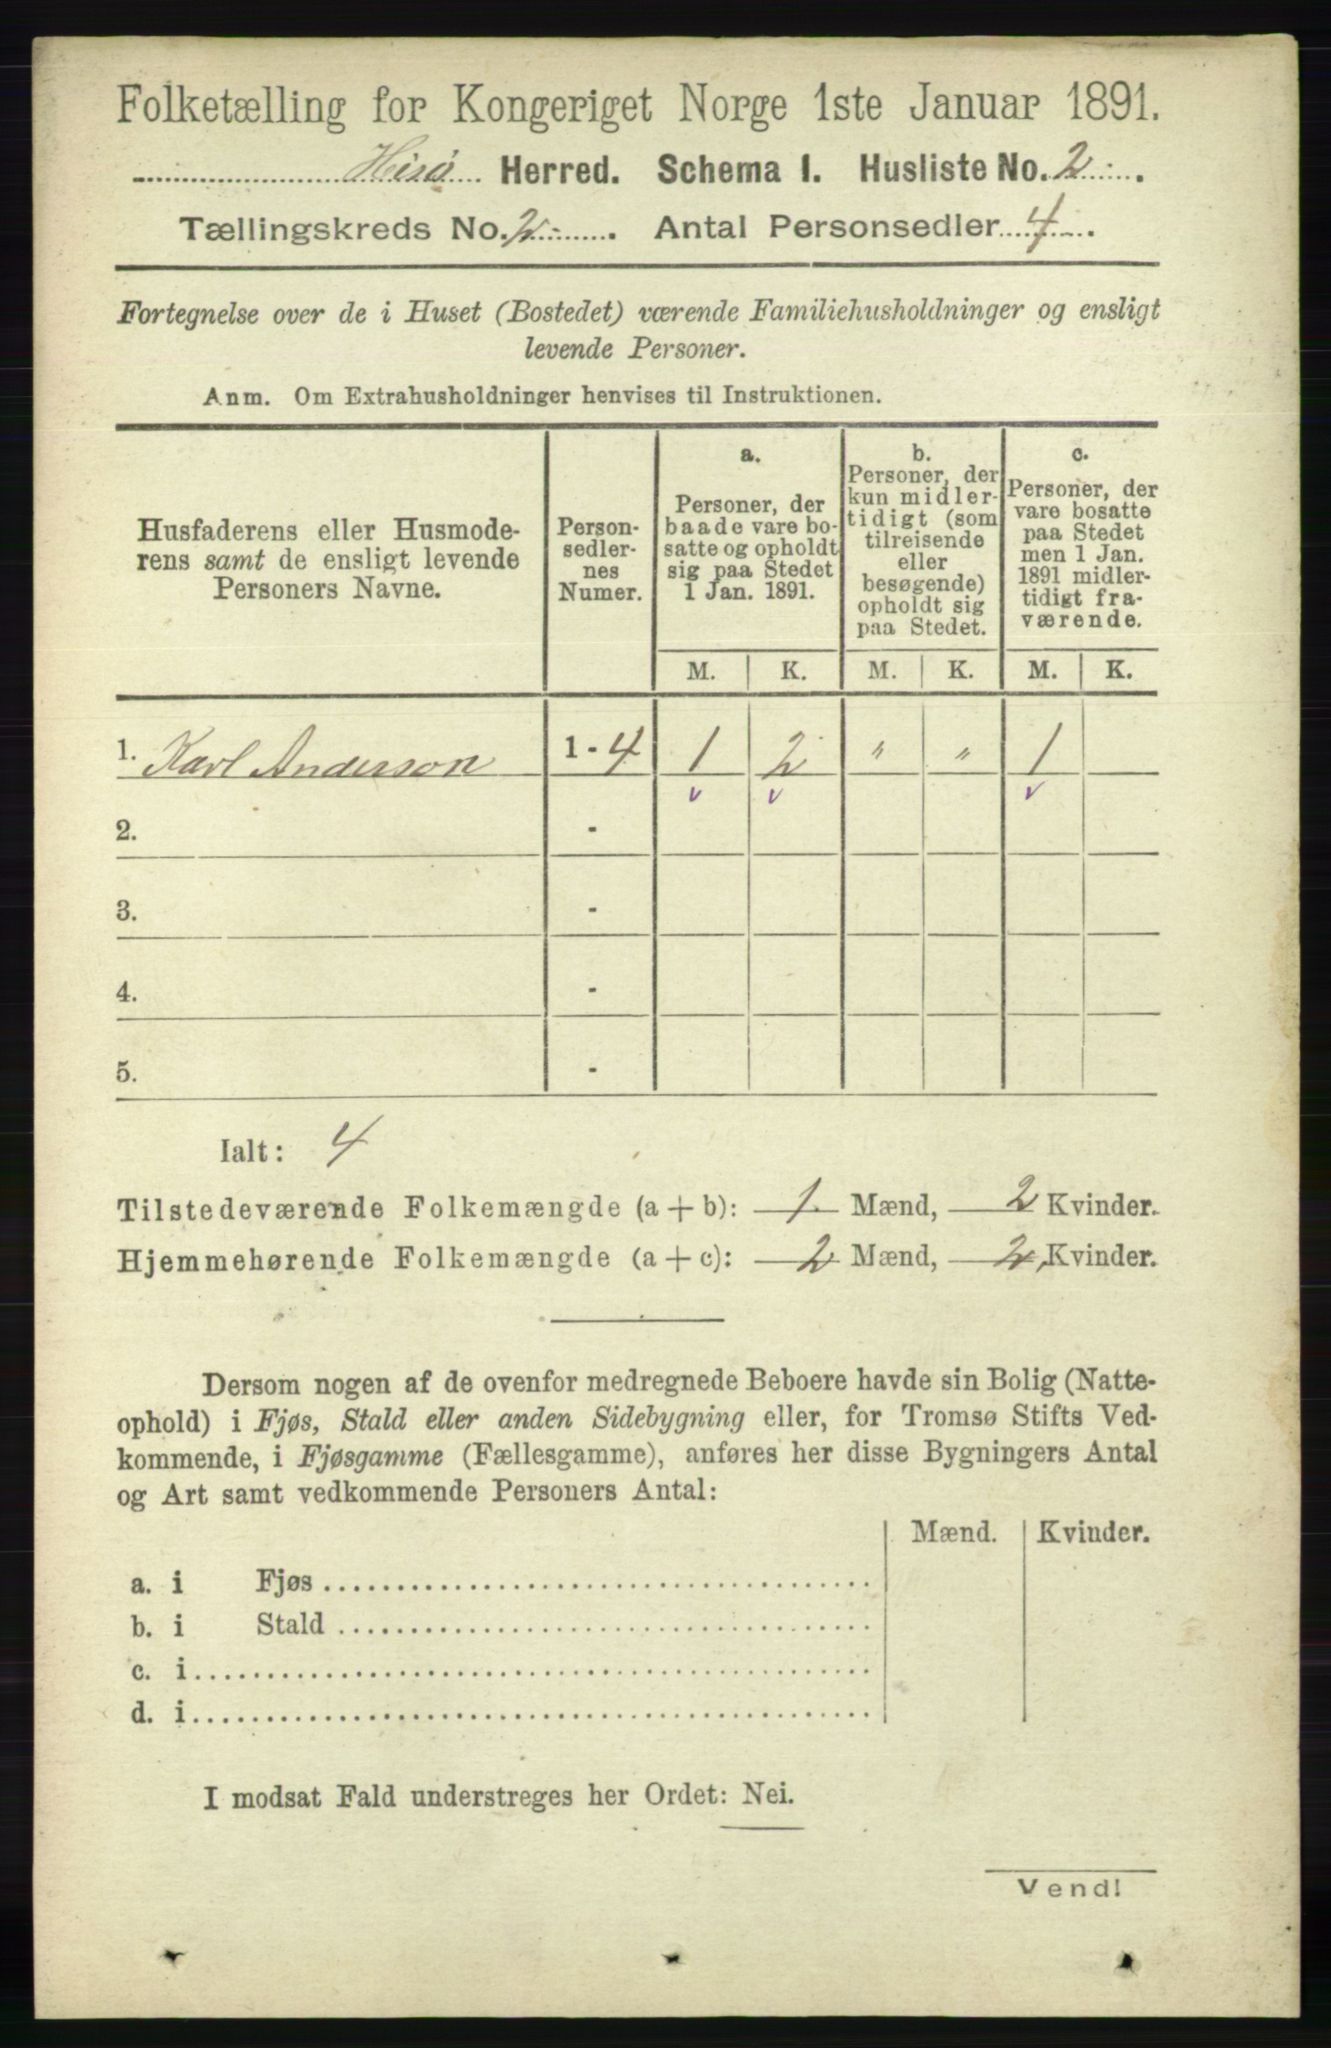 Folketælling for Kongeriget Norge 1ste Januar 1891.
Hisø Herred. Schema I. Husliste No. 2.
Tællingskreds No. 2. Antal Personsedler 4.
Fortegnelse over de i Huset (Bostedet) værende Familiehusholdninger og ensligt
levende Personer.
Anm. Om Extrahusholdninger henvises til Instruktionen.
Husfaderens eller Husmode-
rens samt de ensligt levende
Personers Navne.
Person-
sedler-
nes
Numer.
a.
Personer, der
baade vare bo-
satte og opholdt
sig paa Stedet
1 Jan. 1891.
b.
Personer, der
kun midler-
tidigt (som
tilreisende
eller
besøgende)
opholdt sig
paa Stedet.
c.
Personer, der
vare bosatte
paa Stedet
men 1 Jan.
1891 midler-
tidigt fra-
værende.
M. K. M. K. M. K.
1. Karl Anderson 1 - 4 1 2 " " 1
v v v
2. -
3. -
4. -
5. -
Ialt: 4
Tilstedeværende Folkemængde (a + b): 1 Mænd, 2 Kvinder.
Hjemmehørende Folkemængde (a + c): 2 Mænd, 2 Kvinder.
Dersom nogen af de ovenfor medregnede Beboere havde sin Bolig (Natte-
ophold) i Fjøs, Stald eller anden Sidebygning eller, for Tromsø Stifts Ved-
kommende, i Fjøsgamme (Fællesgamme), anføres her disse Bygningers Antal
og Art samt vedkommende Personers Antal:
Mænd. Kvinder.
a. i Fjøs
b. i Stald
c. i
d. i
I modsat Fald understreges her Ordet: Nei.
Vend!